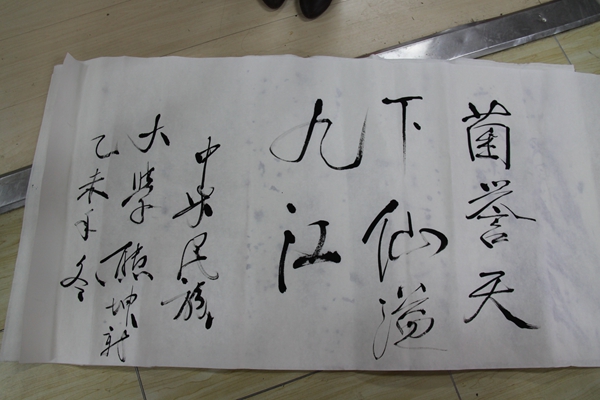 菌誉天
下仙溢
九江
中央民族
大學熊坤新
乙未年冬